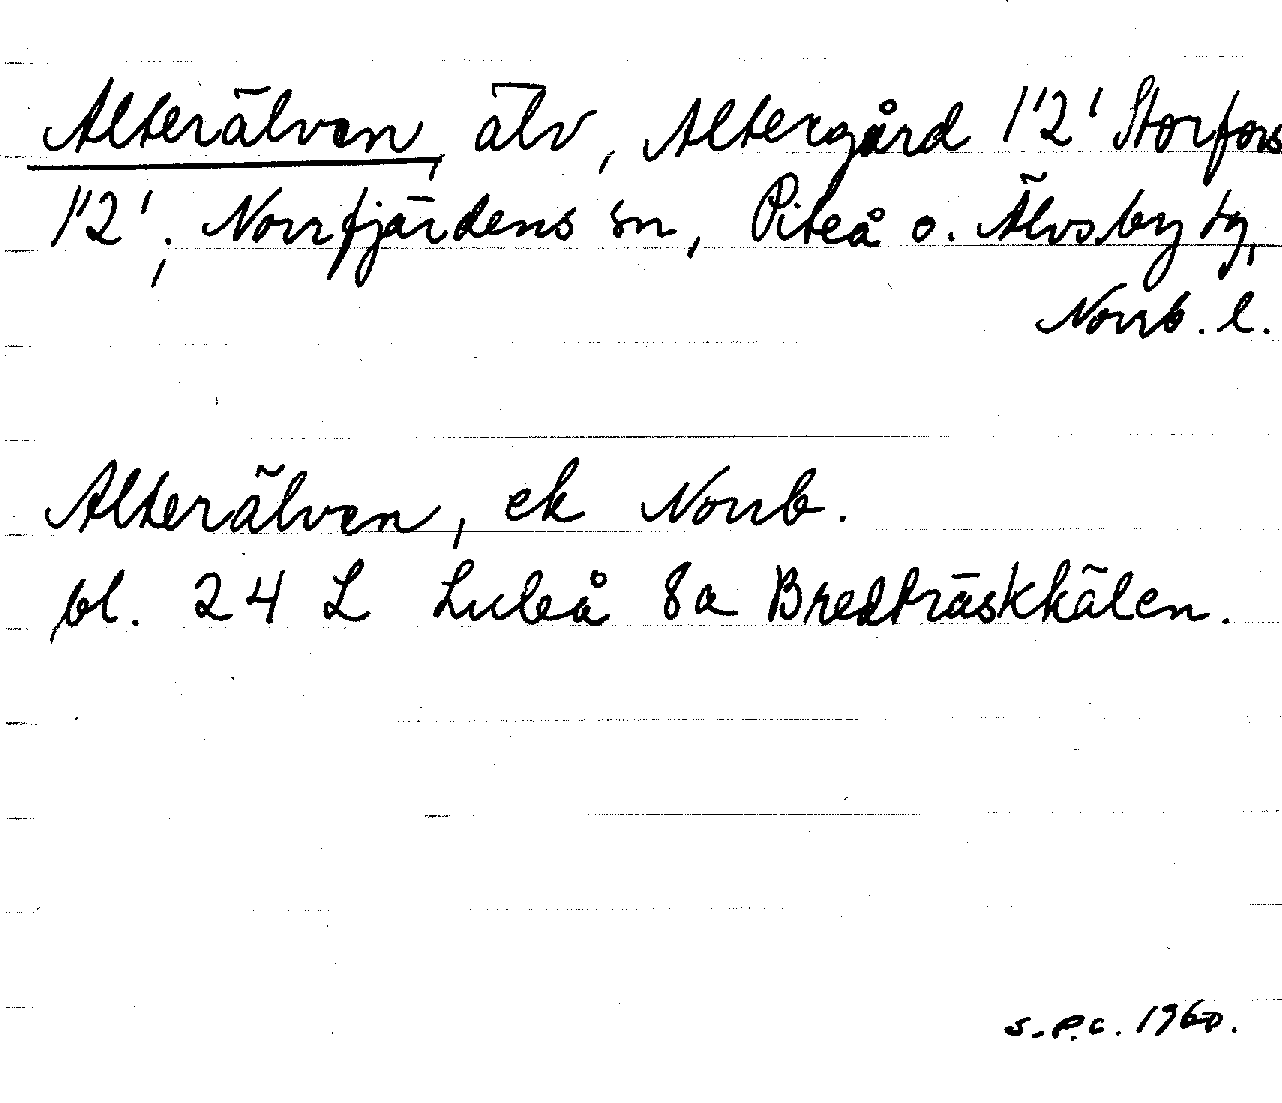 Alterälven, älv, Altergård 1'2' Storfors
1'2'; Norrfjärdens sn, Piteå o. Älvsby tg,
Norrb. l.
Alterälven, ek Norrb.
bl. 24 L Luleå 8a Bredträskkälen.
S.P.C. 1960.